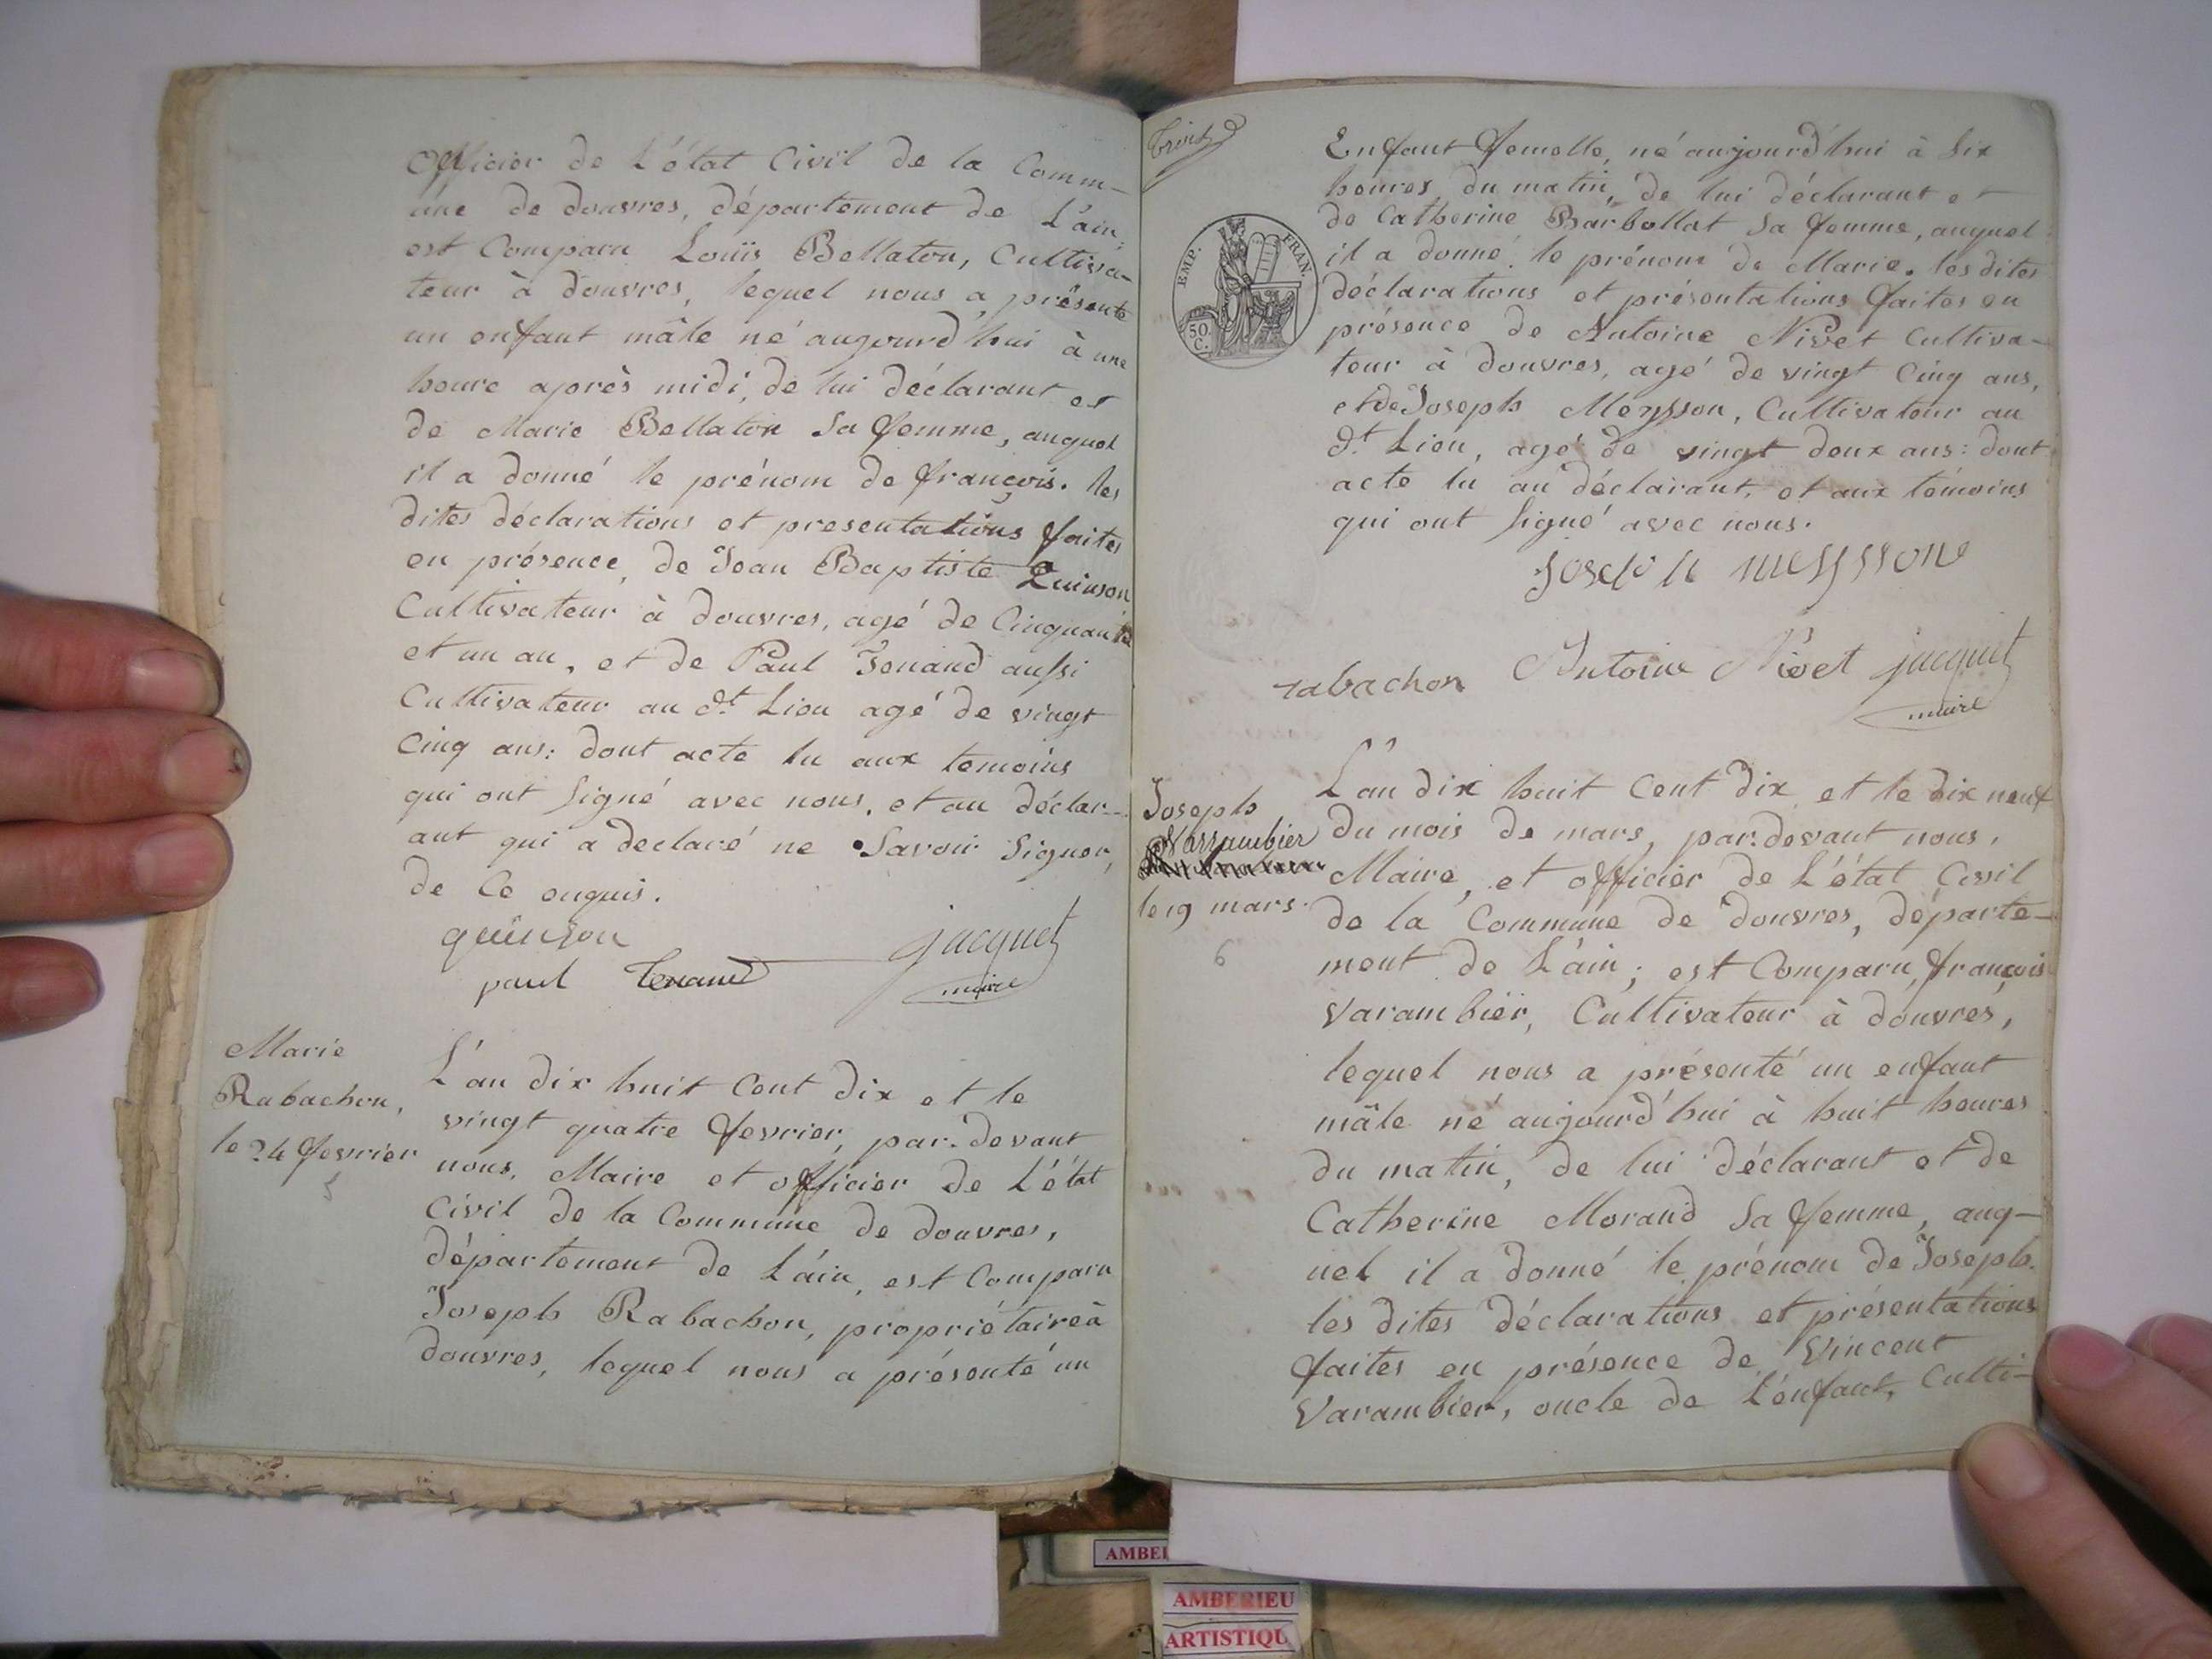 Officier de L'état Civil de la Comm-
une de douvres, département de L'ain,
est Comparu Louïs Bellaton, Cultiva-
teur à douvres, lequel nous a présenté
un enfant mâle né aujourd'hui à une
heure après midi, de lui déclarant et
de Marie Bellaton sa femme, auquel
il a donné le prénom de françois. les
dites déclarations et presentations faites
en présence, de Jean Baptiste Quinson
Cultivateur à douvres, agé de Cinquante
et un an, et de Paul Tenand aussi
Cultivateur au dt. Lieu agé de vingt
Cinq ans: dont acte lu aux temoins
qui ont signé avec nous, et au déclar-
ant qui a declaré ne Savoir Signer,
de Ce enquis.
quinson
paul Tenand jacquet
maire
Marie
Rabachon,
le 24 fevrier
5
L'an dix huit Cent dix et le
vingt quatre fevrier, par-devant
nous, Maire et officier de L'état
Civil de la Commune de douvres,
département de L'ain, est Comparu
Joseph Rabachon, propriétaire à
douvres, lequel nous a présenté un
Enfant femelle, né aujourd'hui à Six
heures du matin, de lui déclarant et
de Catherine Barbollat Sa femme, auquel
il a donné le prénom de Marie. les dites
déclarations et présentations faites en
présence de Antoine Nivet Cultiva-
teur à douvres, agé de vingt Cinq ans,
et de Joseph Meysson, Cultivateur au
dt. Lieu, agé de vingt deux ans: dont
acte lu au déclarant, et aux témoins
qui ont signé avec nous.
EMP. FRAN.
50.
C.
rabachon Antoine Nivet jacquet
maire
Joseph
Varambier
le 19 mars.
6
L'an dix huit Cent dix et le dix neuf
du mois de mars, par-devant nous,
Maire, et officier de L'état Civil
de la Commune de douvres, départe-
ment de L'ain; est Comparu, françois
Varambier, Cultivateur à douvres,
lequel nous a présenté un enfant
mâle né aujourd'hui à huit heures
du matin, de lui déclarant et de
Catherine Morand Sa femme, auq-
uel il a donné le prénom de Joseph.
les dites déclarations et présentations
faites en présence de Vincent
Varambier, oncle de L'enfant, Culti-
AMBE
AMBERIEU
ARTISTIQU